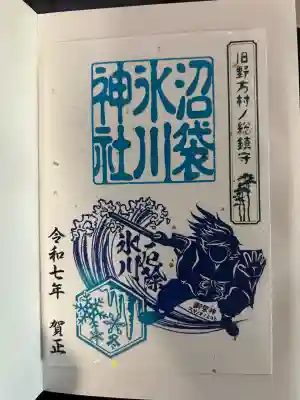 旧野方村ノ総鎮守
沼袋
氷川
神社
厄除
氷川
令和七年 賀正